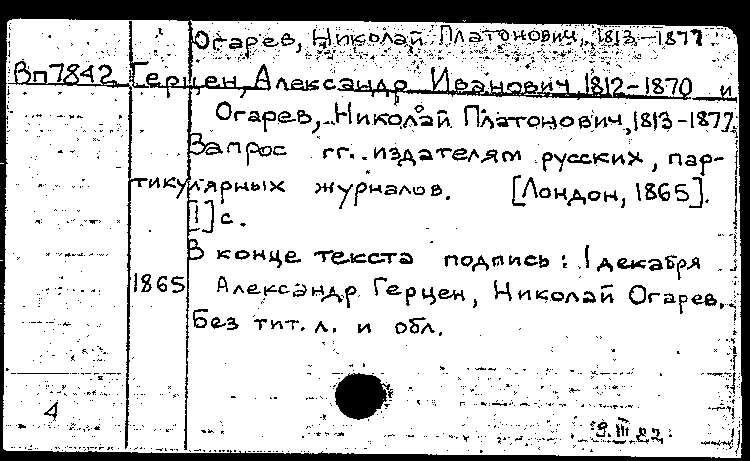 Огарев, Николай Платонович, 1813-1877.
Вп7842 Герцен, Александр Иванович, 1812-1870 и
Огарев, Николай Платонович, 1813-1877
Запрос гг. издателям русских, пар-
тикулярных журналов. [Лондон, 1865].
[1] с.
В конце текста подпись: 1 декабря
1865 Александр Герцен, Николай Огарев.
Без тит. л. и обл.
4
9.III